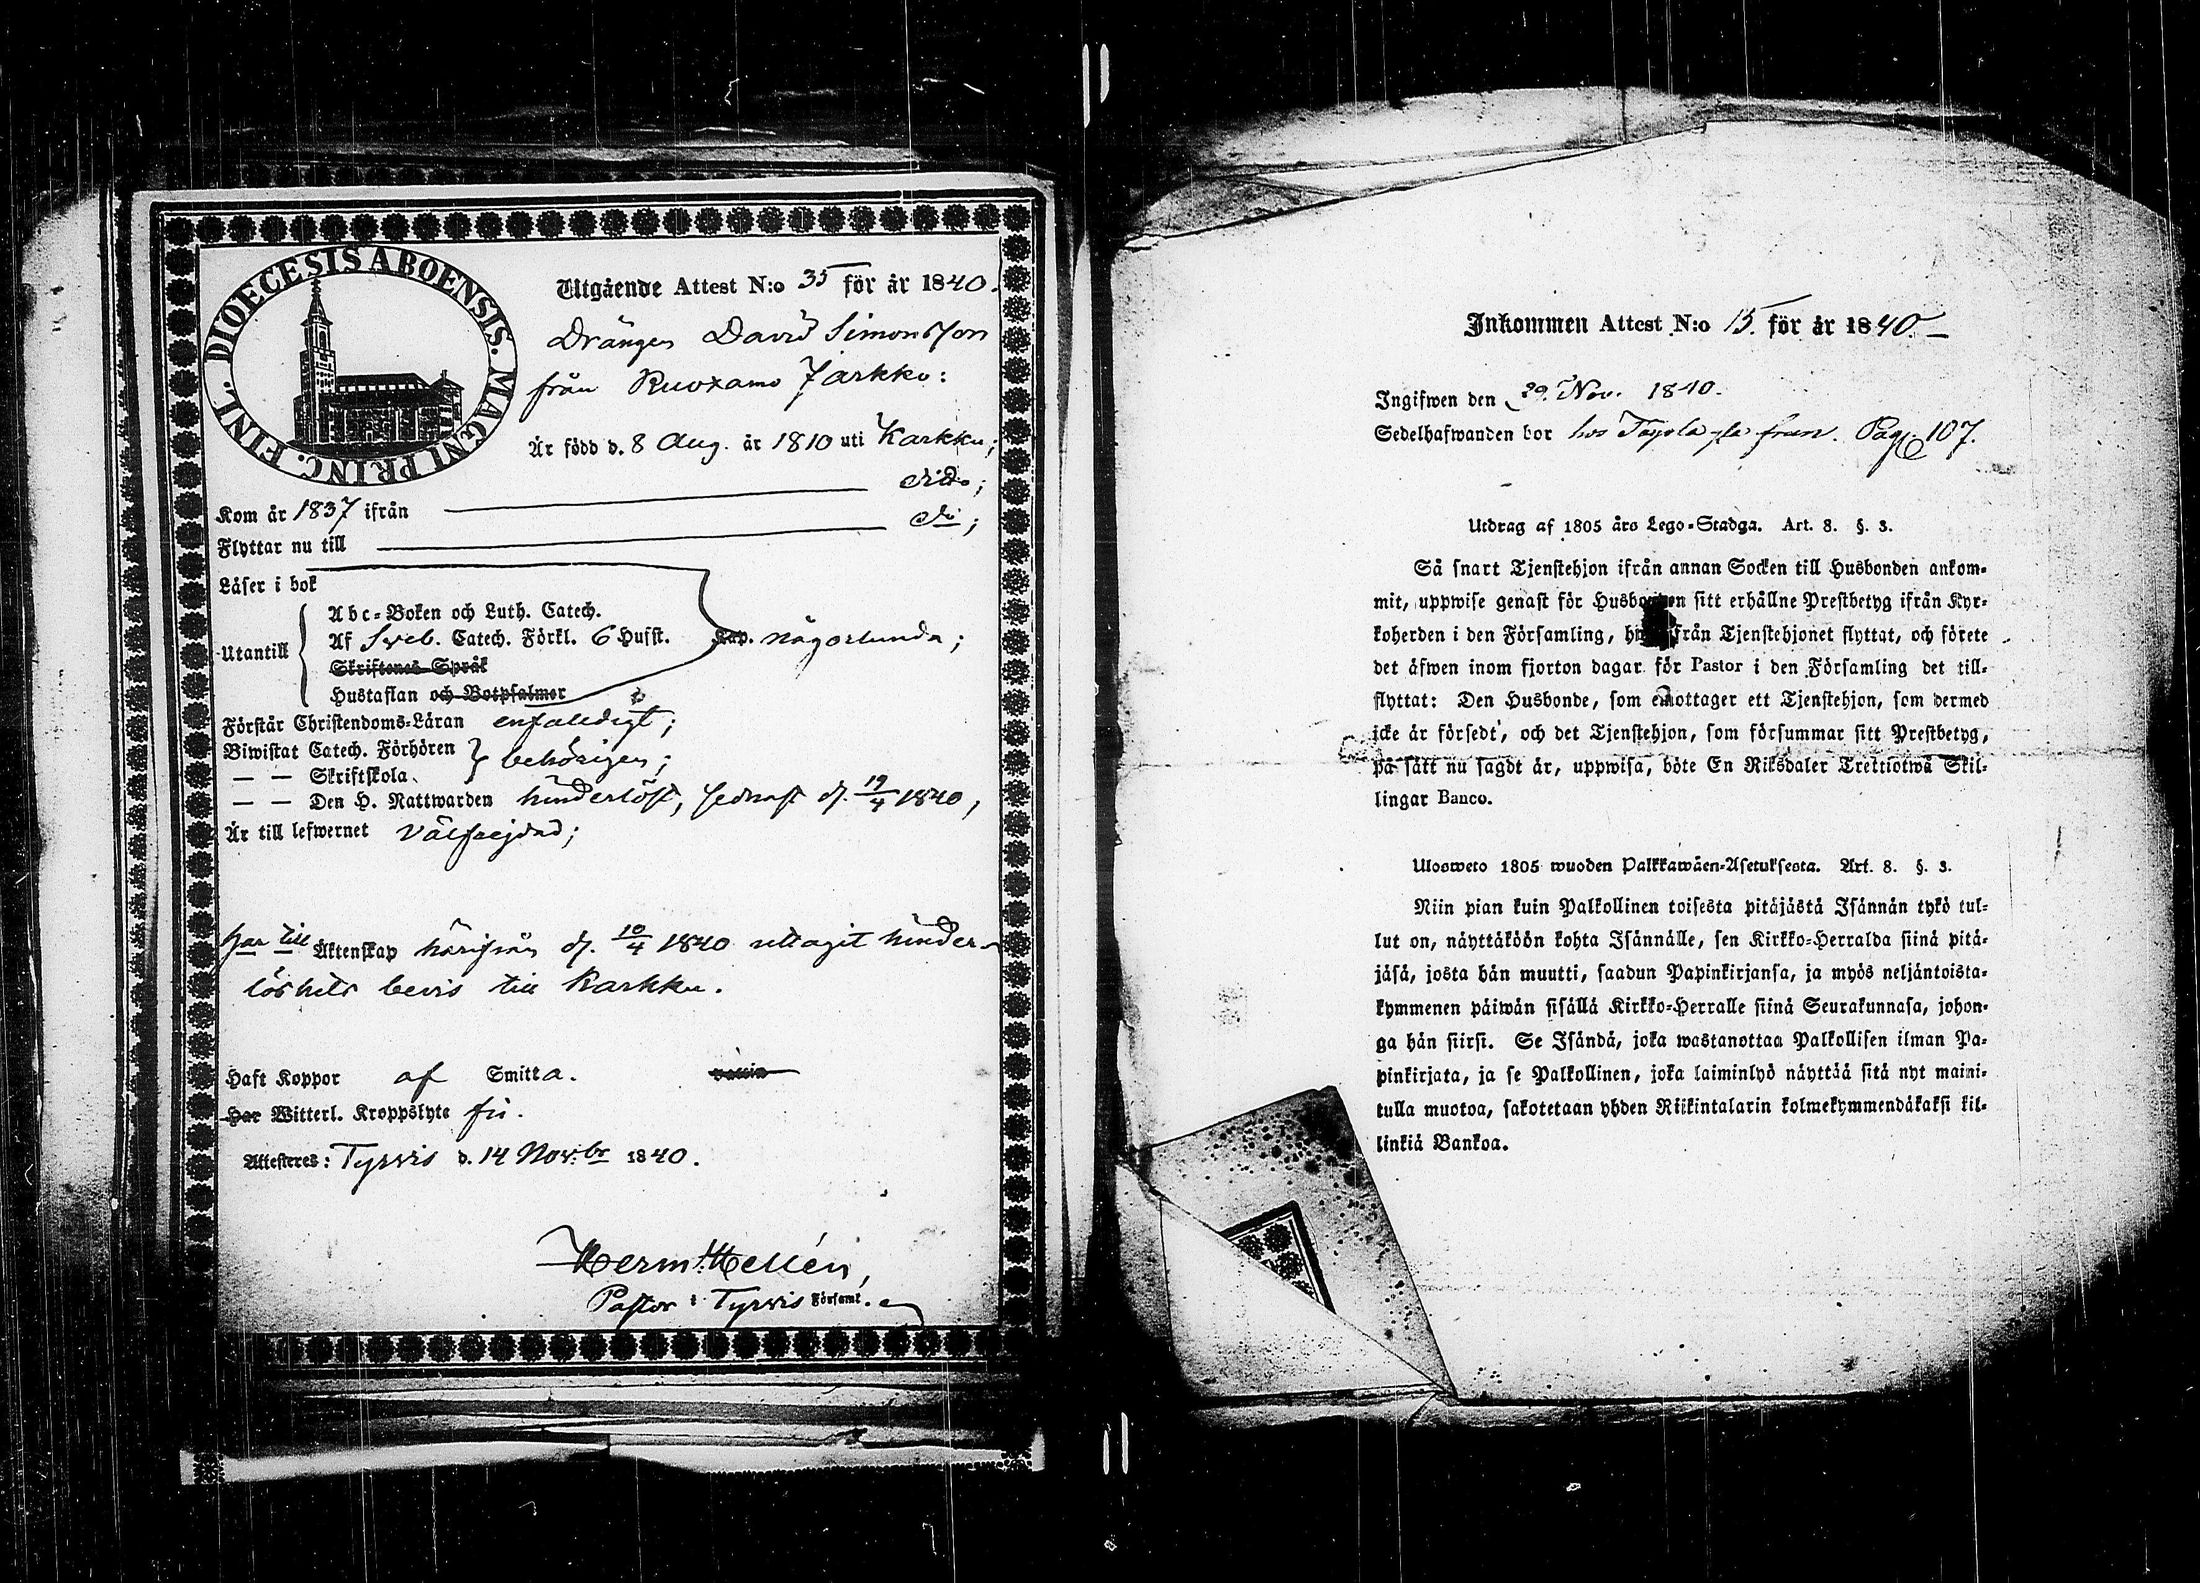 DIOECESIS ABOENSIS. MAGNI PRINC. FINL.
Utgående Attest N:o 35 för år 1840.
Drängen David Simonsson
från Ruoxamo Jarkko:
Är född d. 8 Aug. år 1810 uti Karkku;
Kom år 1837 ifrån dido;
Flyttar nu till do;
Läser i bok
Utantill
Abc-Boken och Luth. Catech.
Af Sveb. Catech. Förkl. 6 Hufst. Kap. någorlunda;
Skriftenes Språk
Hustaflan och Botpsalmer
Förstår Christendoms-Läran enfaldigt;
Biwistat Catech. Förhören
— — Skriftskola behörigen;
— — Den H. Nattwarden hinderlöst, sednast d. 19/4 1840,
Är till lefwernet välfrejdad;
har till Äktenskap härifrån d. 10/4 1840 uttagit hinder-
löshets bevis till Karkku.
Haft Koppor af Smitta. vaccin
Har Witterl. Kroppslyte fri.
Attesteres: Tyrvis d. 14 Nov:br 1840.
Herm. Hellén,
Pastor i Tyrvis Församl.
Inkommen Attest N:o 15. för år 1840.
Ingifwen den 29. Nov. 1840.
Sedelhafwanden bor hos Pag. 107.
Utdrag af 1805 års Lego-Stadga. Art. 8. §. 3.
Så snart Tjenstehjon ifrån annan Socken till Husbonden ankom-
mit, uppwise genast för Husbonden sitt erhållne Prestbetyg ifrån Kyr-
koherden i den Församling, hwarifrån Tjenstehjonet flyttat, och förete
det äfwen inom fjorton dagar för Pastor i den Församling det till-
flyttat: Den Husbonde, som emottager ett Tjenstehjon, som dermed
icke är försedt, och det Tjenstehjon, som försummar sitt Prestbetyg,
på sätt nu sagdt är, uppwisa, böte En Riksdaler Trettiotwå Skil-
lingar Banco.
Ulosweto 1805 wuoden Palkkawäen-Asetuksesta. Art. 8. §. 3.
Niin pian kuin Palkollinen toisesta pitäjästä Isännän tykö tul-
lut on, näyttäköön kohta Isännälle, sen Kirkko-Herralda siinä pitä-
jäsä, josta hän muutti, saadun Papinkirjansa, ja myös neljäntoista-
kymmenen päiwän sisällä Kirkko-Herralle siinä Seurakunnasa, johon-
ga hän siirsi. Se Isändä, joka wastanottaa Palkollisen ilman Pa-
pinkirjata, ja se Palkollinen, joka laiminlyö näyttää sitä nyt maini-
tulla muotoa, sakotetaan yhden Riikintalarin kolmekymmendäkaksi kil-
linkiä Bankoa.